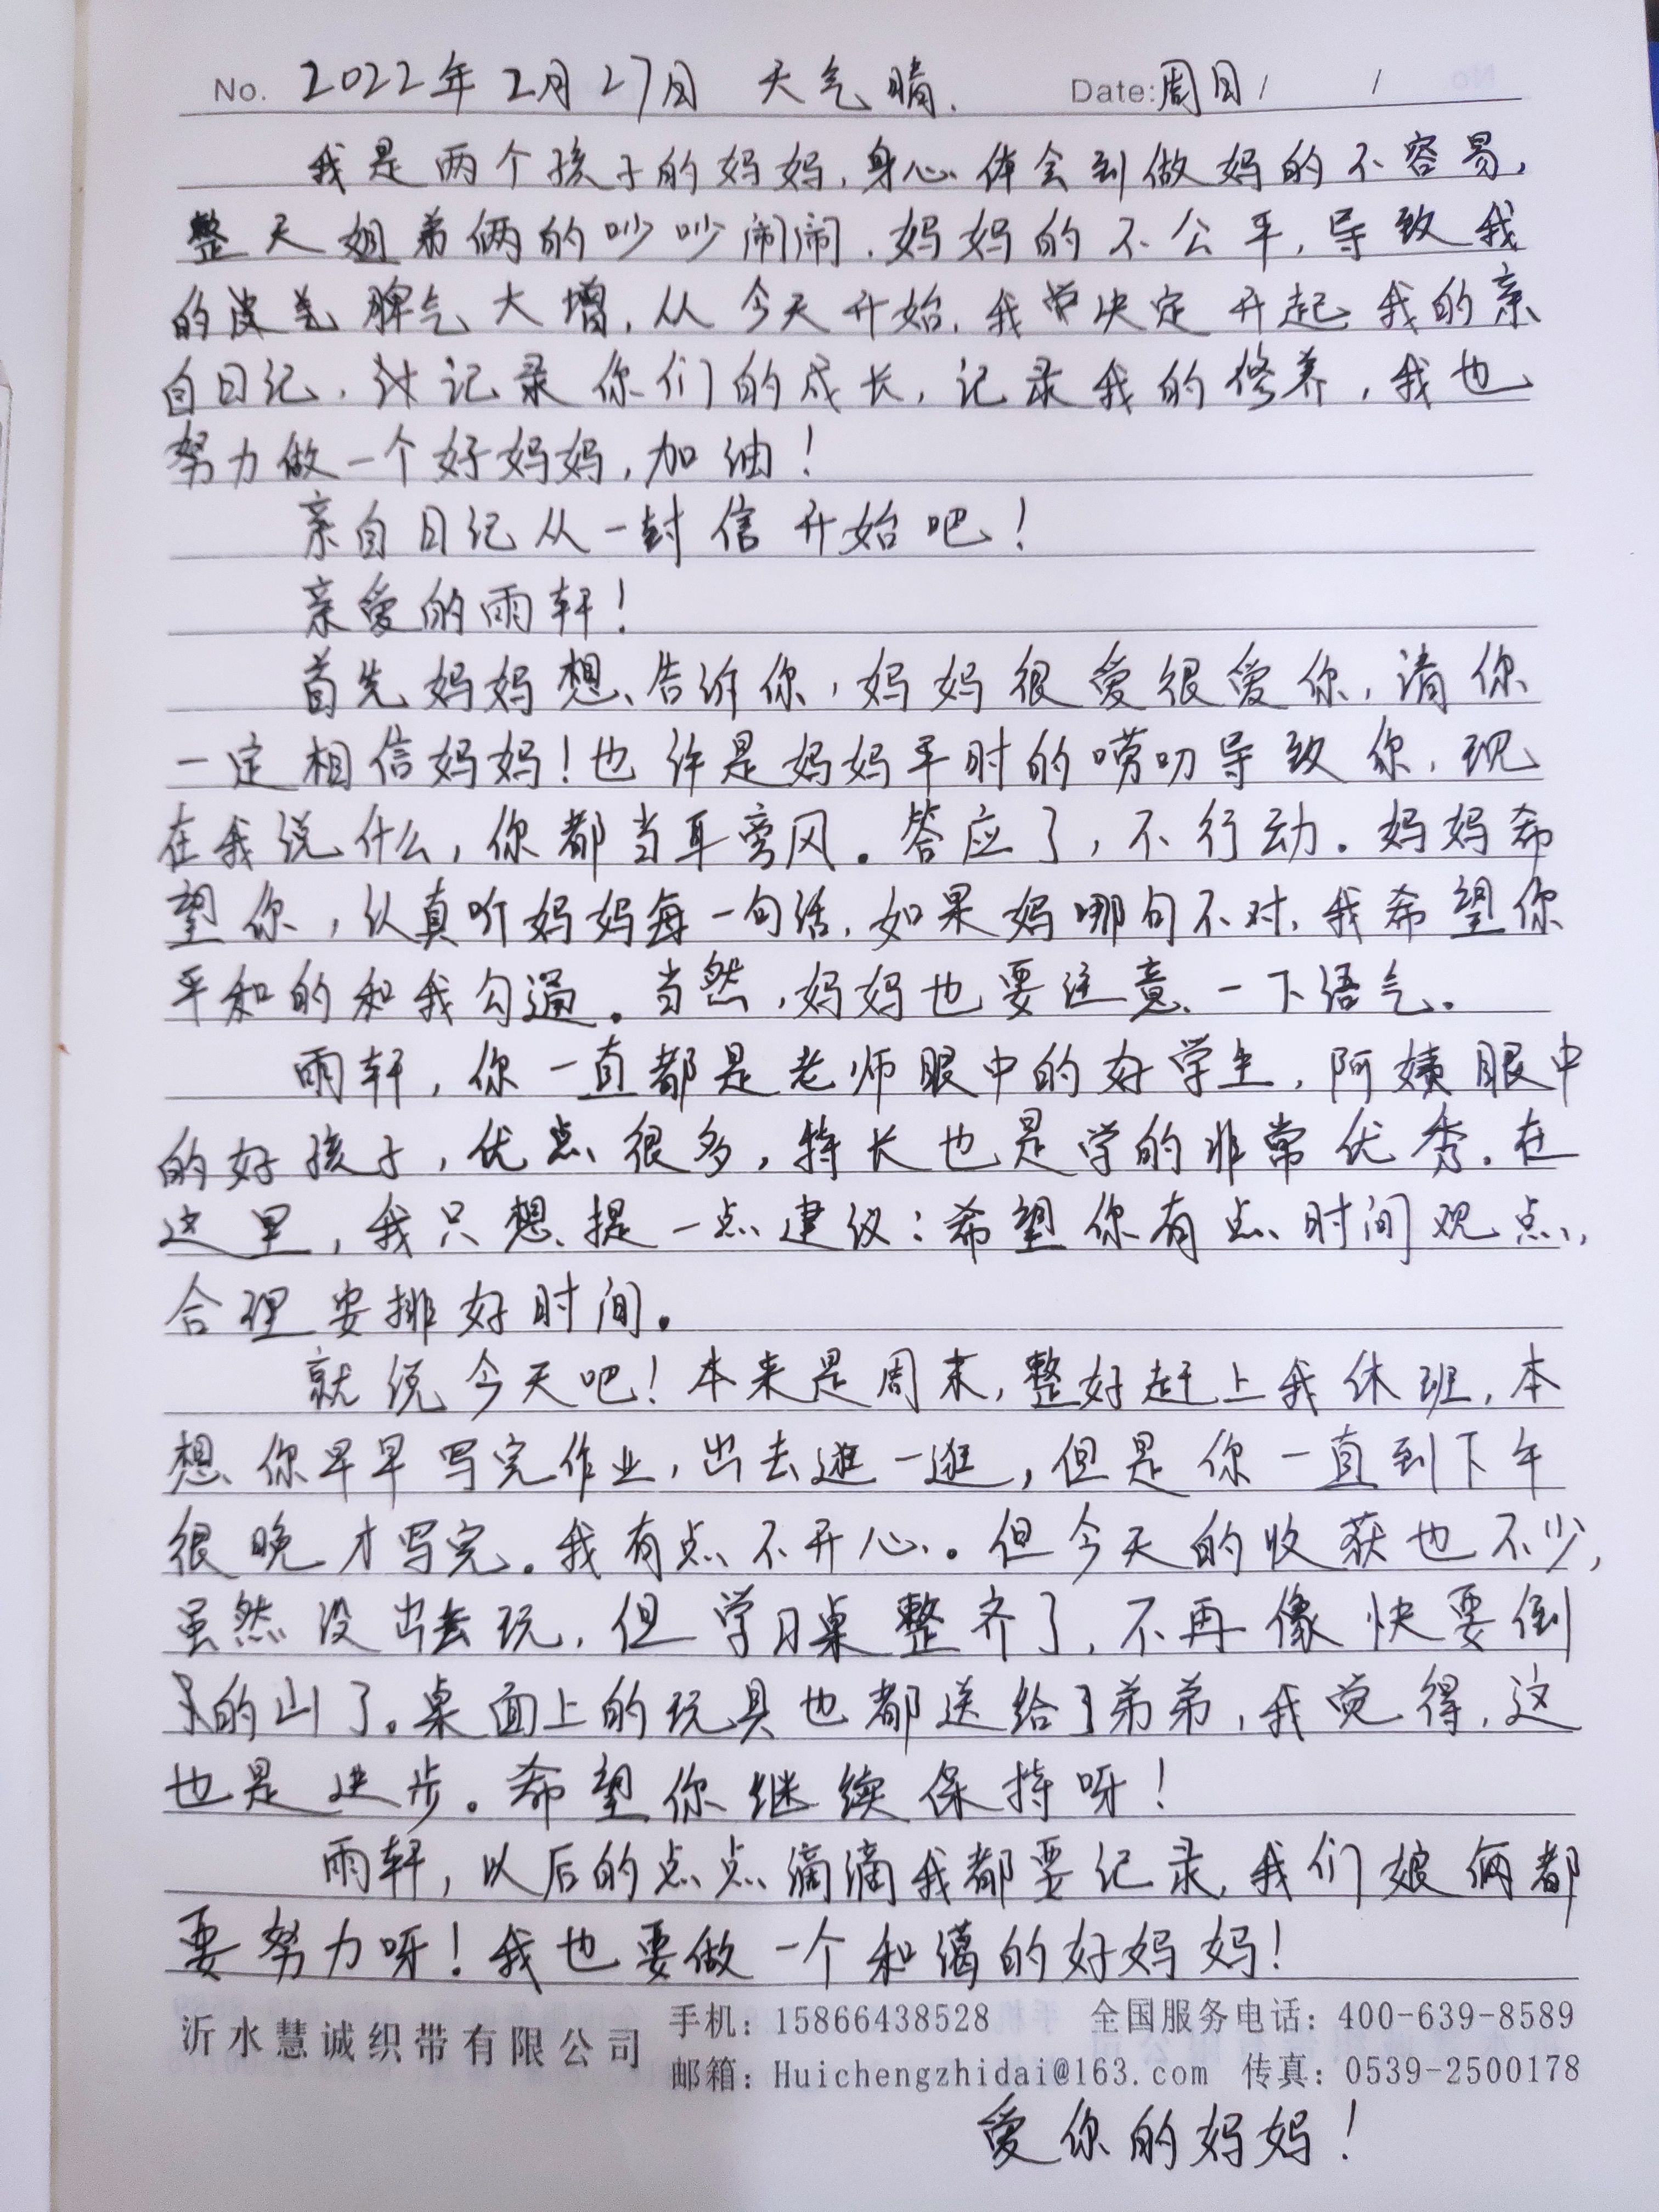 No. 2022年2月27日 天气晴. Date:周日/ /
我是两个孩子的妈妈,身心体会到做妈的不容易,
整天姐弟俩的吵吵闹闹,妈妈的不公平,导致我
的 脾气大增,从今天开始,我 决定开起我的亲
自日记, 记录你们的成长,记录我的修养,我也
努力做一个好妈妈,加油!
亲自日记从一封信开始吧!
亲爱的雨轩!
首先妈妈想告诉你,妈妈很爱很爱你,请你
一定相信妈妈!也许是妈妈平时的唠叨导致你,现
在我说什么,你都当耳旁风。答应了,不行动。妈妈希
望你,认真听妈妈每一句话,如果妈哪句不对,我希望你
平和的和我勾通。当然,妈妈也要注意一下语气。
雨轩,你一直都是老师眼中的好学生,阿姨眼中
的好孩子,优点很多,特长也是学的非常优秀。在
这里,我只想提一点建议:希望你有点时间观点,
合理安排好时间。
就说今天吧!本来是周末,整好赶上我休班,本
想你早早写完作业,出去逛一逛,但是你一直到下午
很晚才写完。我有点不开心。但今天的收获也不少,
虽然没出去玩,但学习桌整齐了,不再像快要倒
的山了。桌面上的玩具也都送给了弟弟,我觉得,这
也是进步。希望你继续保持呀!
雨轩,以后的点点滴滴我都要记录,我们娘俩都
要努力呀!我也要做一个和蔼的好妈妈!
沂水慧诚织带有限公司 手机:15866438528 全国服务电话:400-639-8589
邮箱:Huichengzhidai@163.com 传真:0539-2500178
爱你的妈妈!